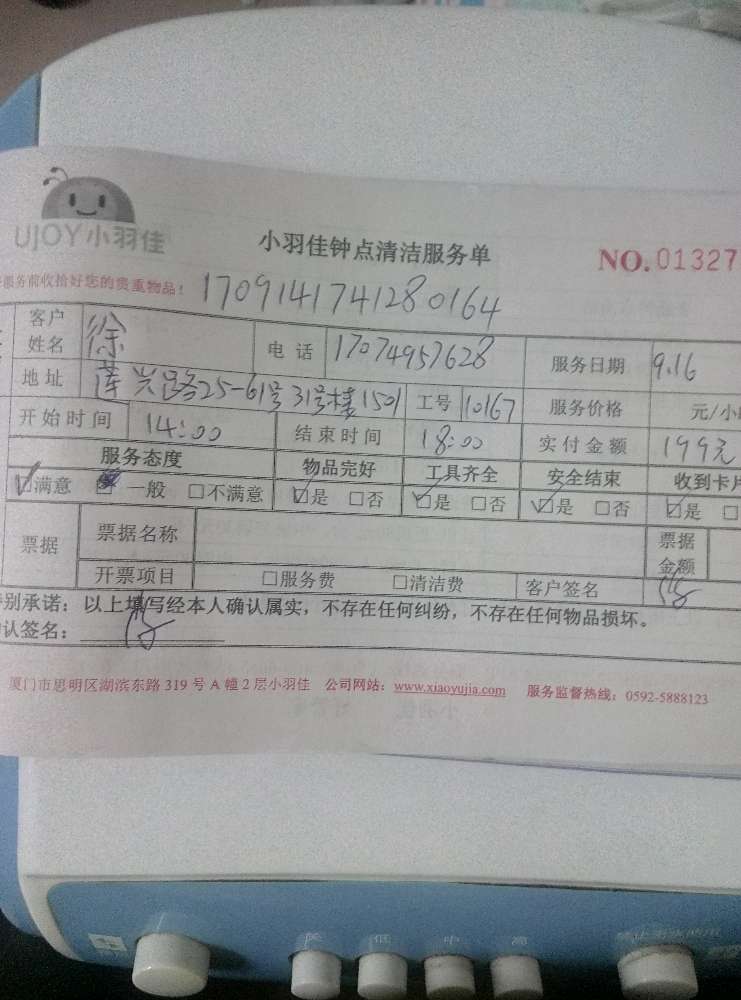 UJOY小羽佳
小羽佳钟点清洁服务单
NO. 01327
服务前收拾好您的贵重物品！ 1709141741280164
客户姓名 徐 电 话 17074957628 服务日期 9.16
地址 莲兴路25-61号31号楼1501 工号 10167 服务价格 元/小
开始时间 14:00 结束时间 18:00 实付金额 199元
服务态度 物品完好 工具齐全 安全结束 收到卡片
☑满意 一般 □不满意 ☑是 □否 ☑是 □否 ☑是 □否 ☑是 □
票据 票据名称 票据金额
开票项目 □服务费 □清洁费 客户签名
别承诺：以上填写经本人确认属实，不存在任何纠纷，不存在任何物品损坏。
认签名：
厦门市思明区湖滨东路 319 号 A 幢 2 层小羽佳 公司网站：www.xiaoyujia.com 服务监督热线：0592-5888123
低 中 高